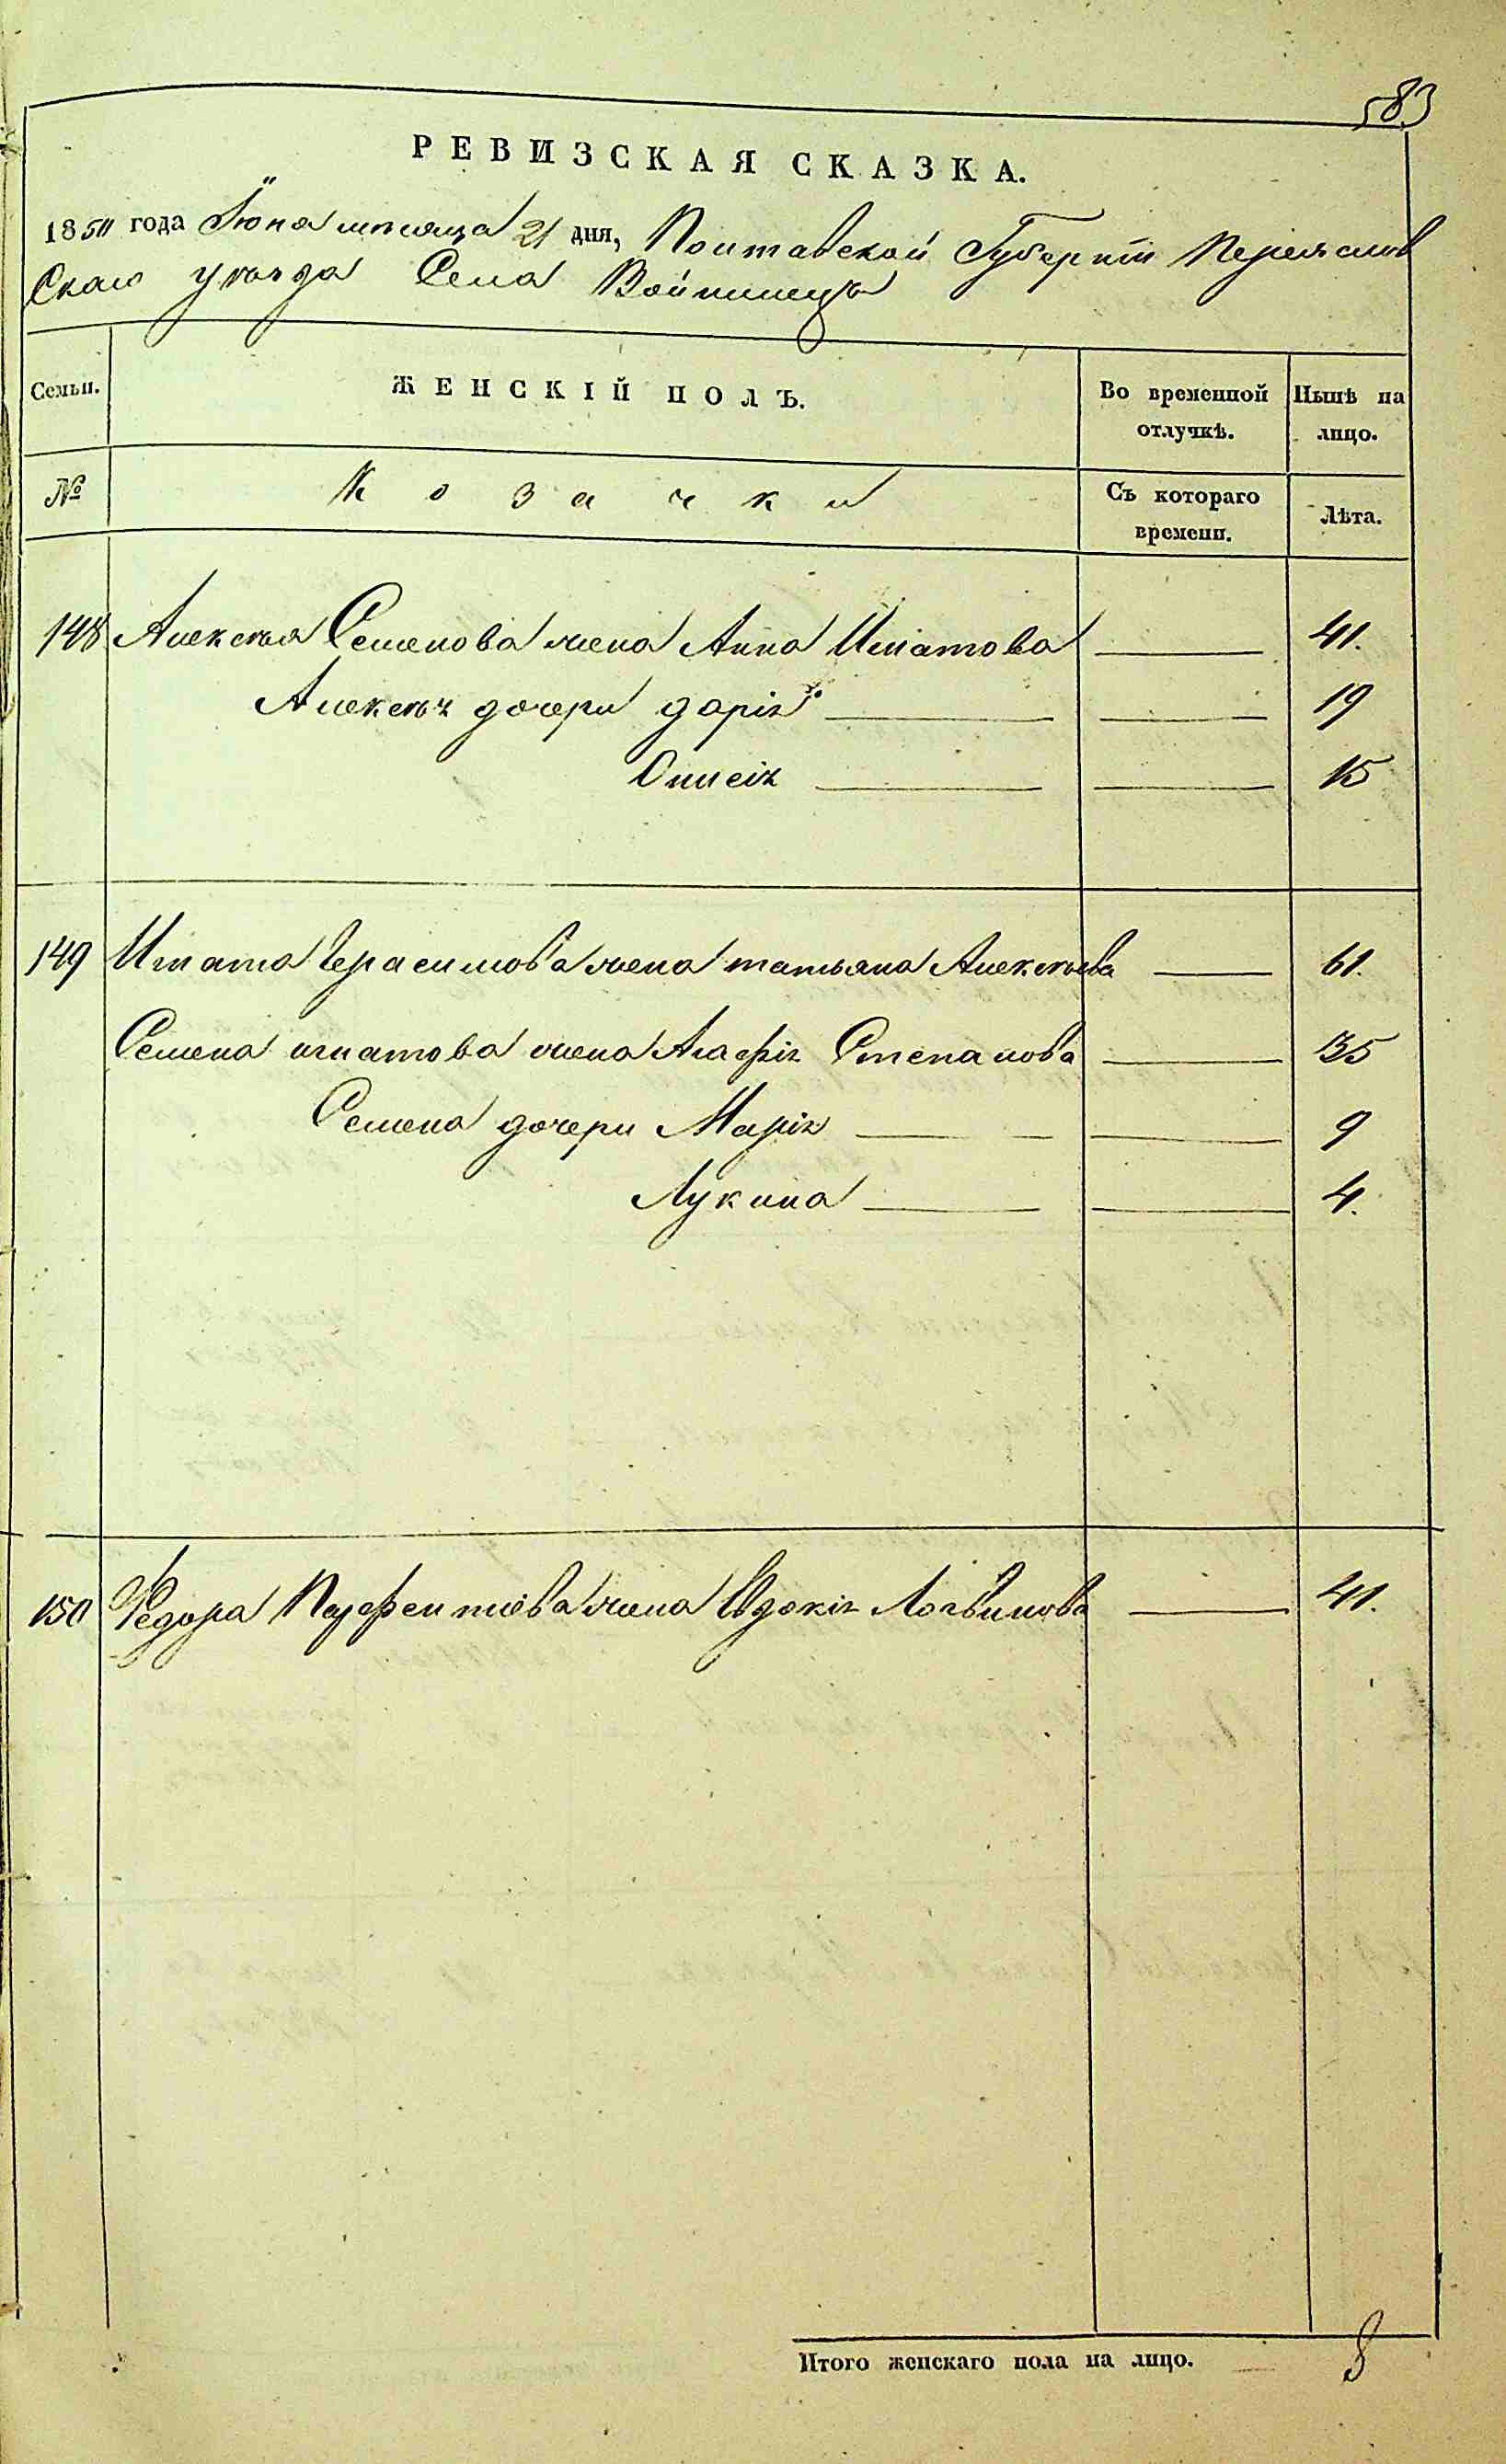 583
РЕВИЗСКАЯ СКАЗКА.
1850 года Іюня мѣсяца 21 дня, Полтавской Губерніи Переяслов
Скаго уѣзда Села Войтовецъ
Семьи.
ЖЕНСКІЙ ПОЛЪ.
Во временной отлучкѣ.
Нынѣ на лицо.
№
Козачки
Съ котораго времени.
Лѣта.
148 Алексѣя Семенова жена Анна Игнатова 41.
Алексѣя дочери дарія 19
Олисія 15
149 Игната Герасимова жена татьяна Алексѣева 61.
Семена игнатова жена Агафія Степанова 35
Семена дочери Марія 9
Лукина 4.
150 Федора Парфентіева жена Евдокія Логвинова 41.
Итого женскаго пола на лицо. 8